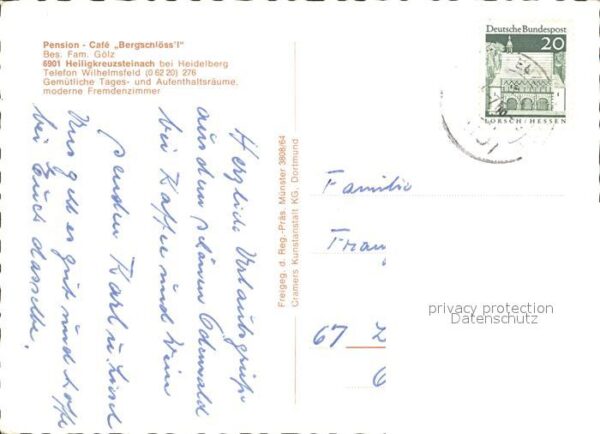 Pension - Café „Bergschlöss'l"
Bes. Fam. Gölz
6901 Heiligkreuzsteinach bei Heidelberg
Telefon Wilhelmsfeld (0 62 20) 276
Gemütliche Tages- und Aufenthaltsräume,
moderne Fremdenzimmer
Herzliche Urlaubsgrüße
aus dem schönen Odenwald
bei Kaffee und Wein
senden Karl u. Liesel
Uns geht es gut und hoffe
bei Euch dasselbe.
Freigeg. d. Reg.-Präs. Münster 3808/64
Cramers Kunstanstalt KG. Dortmund
Deutsche Bundespost
20
LORSCH / HESSEN
Familie
67
privacy protection
Datenschutz